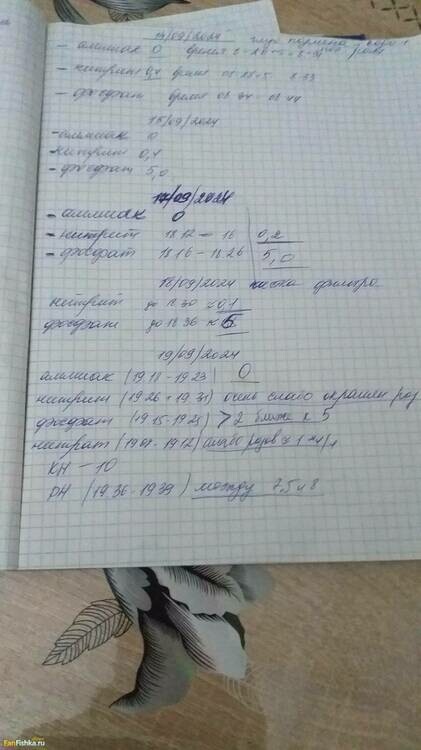 14/09/2024
- аммиак 0 время
- нитрит 0,4 время
- фосфат время
15/09/2024
- аммиак 0
- нитрит 0,4
- фосфат 5,0
17/09/2024
- аммиак 0
- нитрит 18.12 — 16 0,2
- фосфат 18.16 - 18.26 5,0
18/09/2024 чистка фильтра
нитрит до 18.30 0,1
фосфат до 18.36 5
19/09/2024
аммиак (19.18 - 19.23) 0
нитрит (19.26 - 19.31) очень слабо окрашен роз
фосфат (19.15 - 19.25) > 2 ближе к 5
нитрат (19.02 - 19.12) слабо розов ≈ 1
KH - 10
PH (19.36 - 19.39) между 7,5 и 8
FanFishka.ru